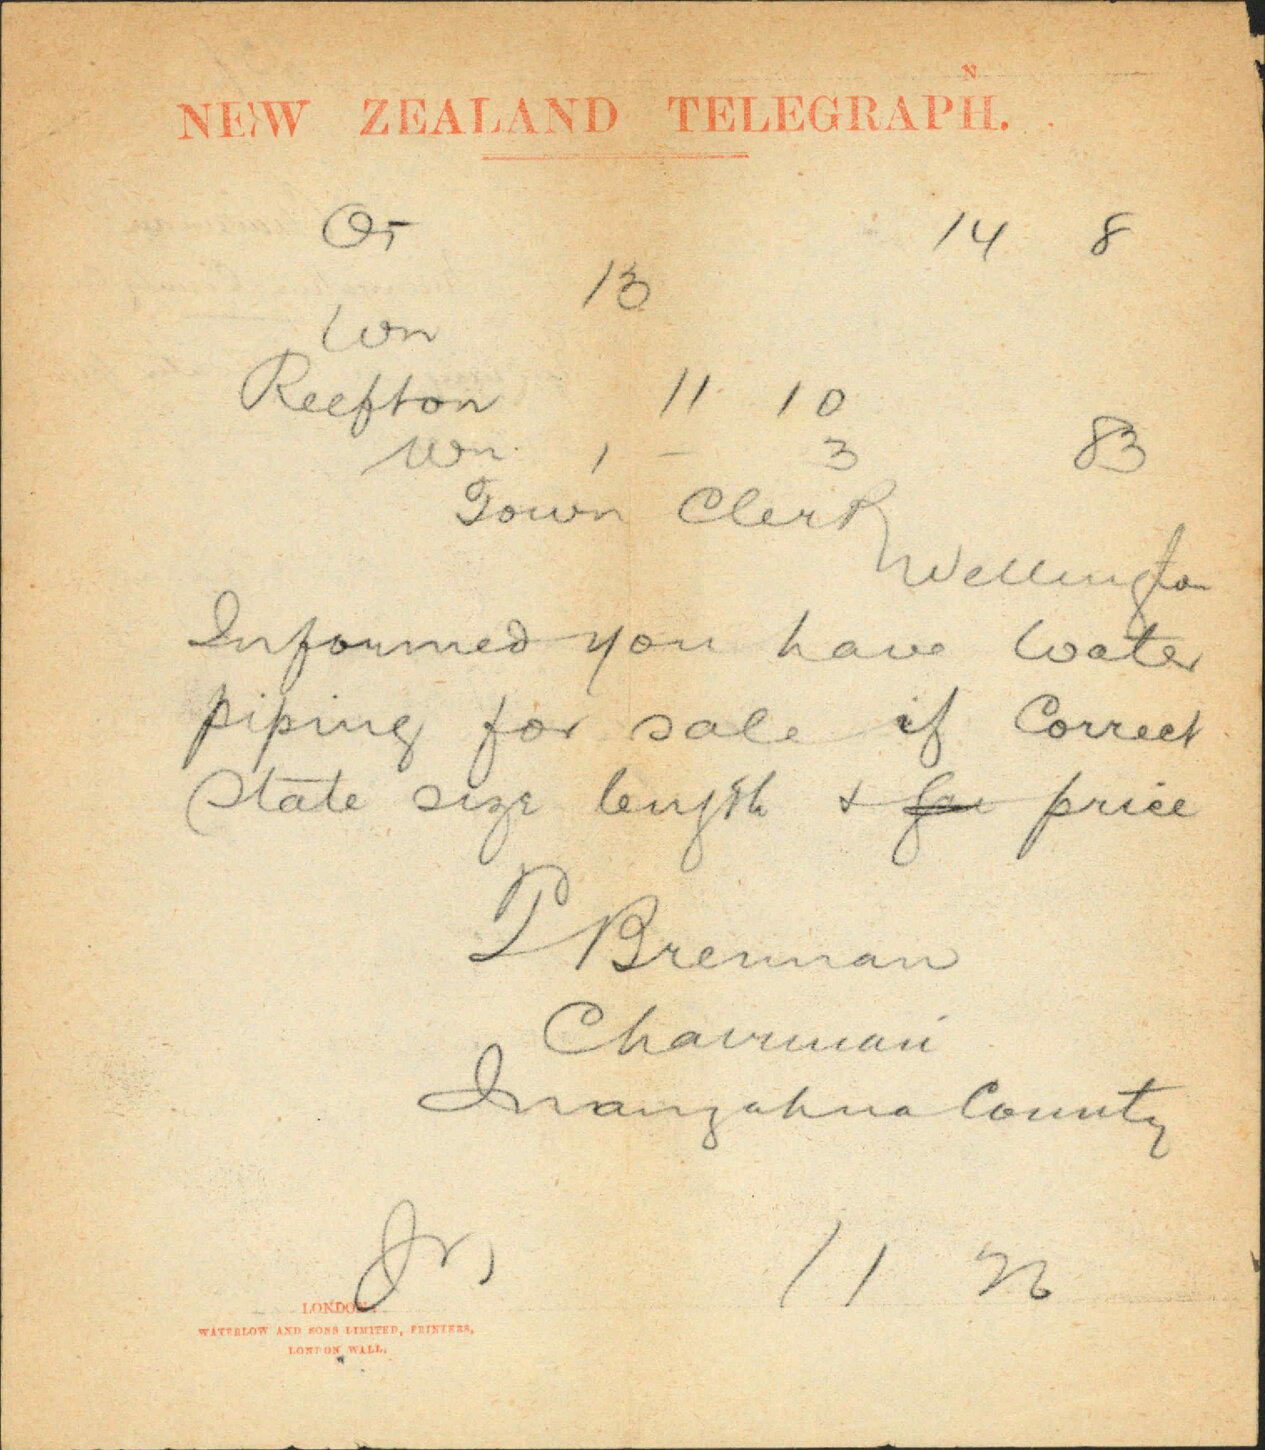 NEW ZEALAND TELEGRAPH.
14 8
13
Wn
Reefton 11 10
Wn 1 - 3 83
Town Clerk
Wellington
Informed you have water
piping for sale if Correct
State size length & price
P Brennan
Chairman
Inangahua County
11 26
LONDON:
WATERLOW AND SONS LIMITED, PRINTERS,
LONDON WALL.